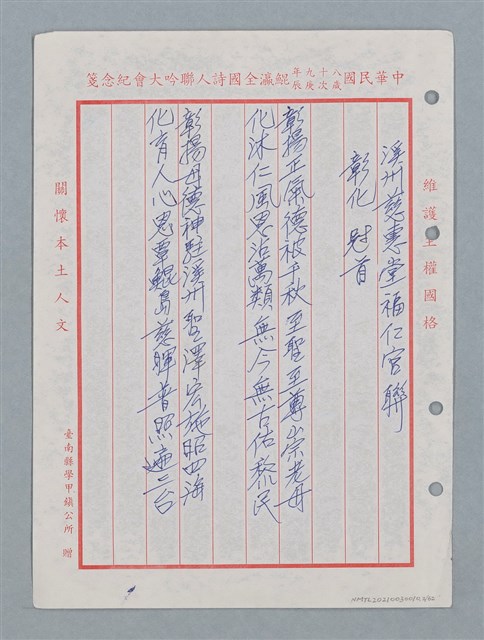 中華民國八十九年歲次庚辰鯤瀛全國詩人聯吟大會紀念箋
維護主權國格
溪州慈惠堂福仁宮聯
彰化 冠首
彰揚正氣德被千秋至聖至尊崇老母
化沐仁風恩沾萬類無今無古佑黎民
彰揚母德神駐溪州聖澤宏施昭四海
化育人心恩覃鯤島慈暉普照遍三台
關懷本土人文
臺南縣學甲鎮公所 贈